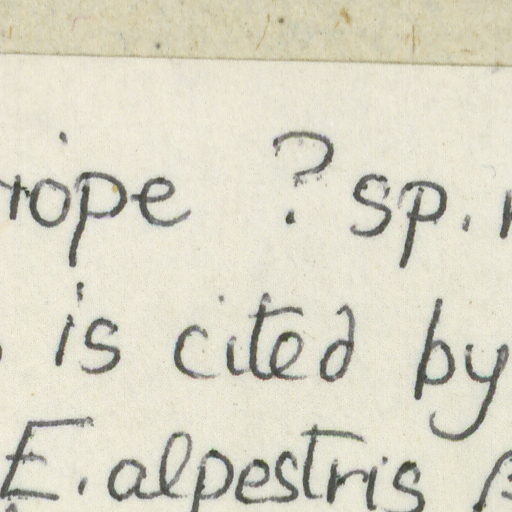 rope ? sp.
is cited by
E. alpestris β